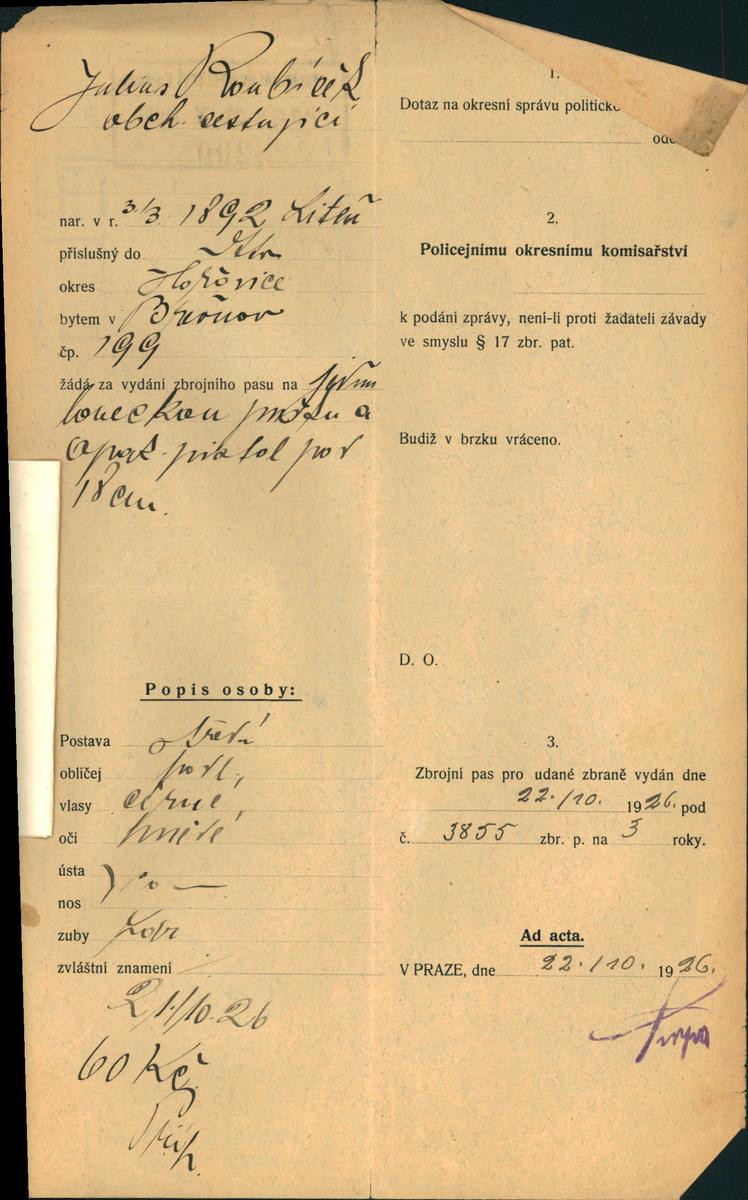 Julius Roubíček
obch. cestující
nar. v r. 3/3 1892 Liteň
příslušný do
okres Hořovice
bytem v Břevnov
čp. 199
žádá za vydání zbrojního pasu na jednu
loveckou pušku a
opak. pistol pod
18 cm.
Popis osoby:
Postava střední
obličej podl.
vlasy černé,
oči hnědé
ústa
nos
zuby zdr
zvláštní znamení
21/10.26
60 Kč
1.
Dotaz na okresní správu politicko
ode
2.
Policejnímu okresnímu komisařství
k podání zprávy, není-li proti žadateli závady
ve smyslu § 17 zbr. pat.
Budiž v brzku vráceno.
D. O.
3.
Zbrojní pas pro udané zbraně vydán dne
22./10. 1926. pod
č. 3855 zbr. p. na 3 roky.
Ad acta.
V PRAZE, dne 22./10. 1926.